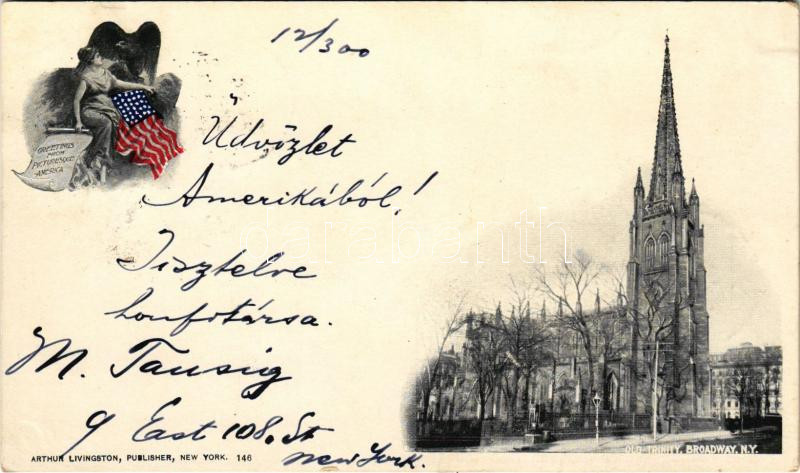 12/3 00
GREETINGS
FROM
PICTURESQUE
AMERICA
Üdvözlet
Amerikából!
Tisztelve
honfitársa.
M. Tausig
9 East 108. St
New York.
OLD TRINITY, BROADWAY, N.Y.
ARTHUR LIVINGSTON, PUBLISHER, NEW YORK. 146